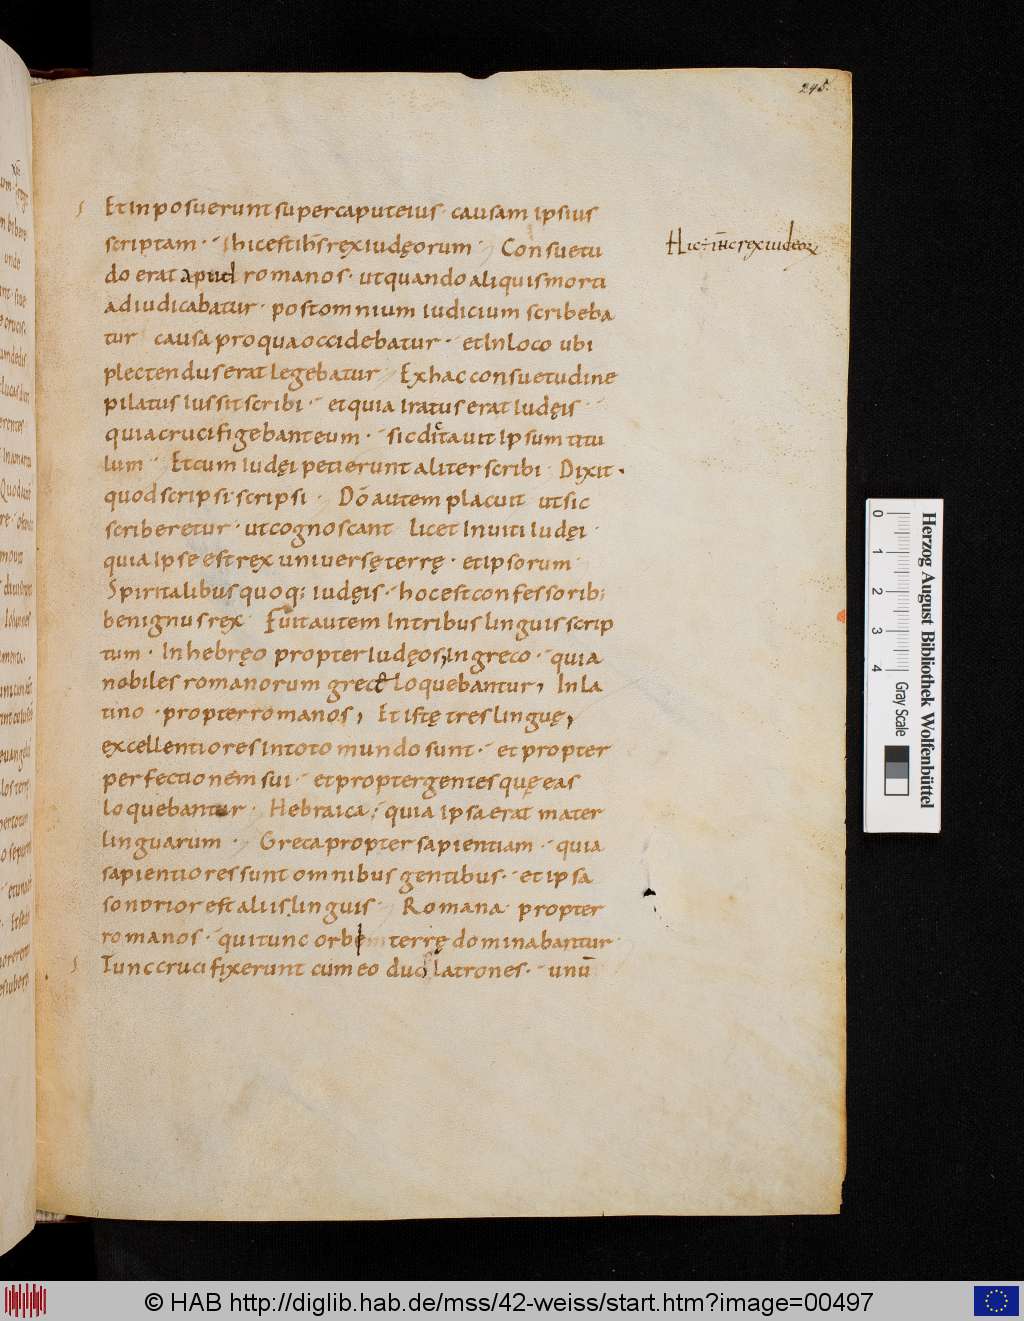 245.
Et inposuerunt super caput eius· causam ipsius
scriptam·· hic est ih̄s rex iudęorum·, Consuetu
Hic ÷ ih̄c rex iudeoꝝ
do erat apud romanos· ut quando aliquis morti
adiudicabatur· post omnium iudicium scribeba
tur causa pro qua occidebatur·· et in loco ubi
plectendus erat legebatur, Ex hac consuetudine
pilatus iussit scribi·· et quia iratus erat iudęis·
quia crucifigebant eum·· sic dictauit ipsum titu
lum·· Et cum iudęi petierunt aliter scribi· Dixit·
quod scripsi· scripsi· Dō autem placuit ut sic
scriberetur· ut cognoscant licet inuiti iudęi·
quia ipse est rex uniuersę terrę· et ipsorum
Spiritalibus quoq; iudęis·· hoc est confessorib;
benignus rex· Fuit autem in tribus linguis scrip
tum· In hebręo propter iudęos, In greco·· quia
nobiles romanorum grece loquebantur, In la
tino· propter romanos, Et istę tres linguę,
excellentiores in toto mundo sunt·· et propter
perfectionem sui·· et propter gentes quę eas
loquebantur· Hebraica; quia ipsa erat mater
linguarum·, Greca propter sapientiam·· quia
sapientiores sunt omnibus gentibus·· et ipsa
sonorior est aliis linguis·· Romana· propter
romanos·· qui tunc orbem terrę dominabantur·
Tunc crucifixerunt cum eo duos latrones·· unū
0 1 2 3 4
Gray Scale
Herzog August Bibliothek Wolfenbüttel
© HAB http://diglib.hab.de/mss/42-weiss/start.htm?image=00497